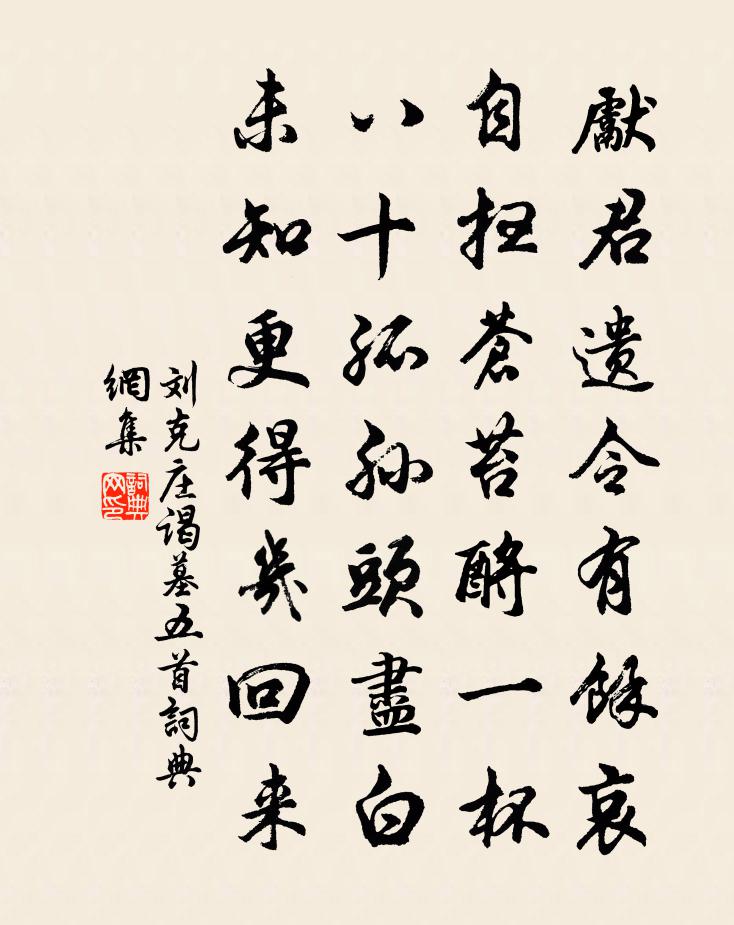 獻君遗令有餘哀
自扫蒼苔酹一杯
八十孤孙頭盡白
未知更得幾回来
刘克庄谒墓五首詞典
網集
詞典网印